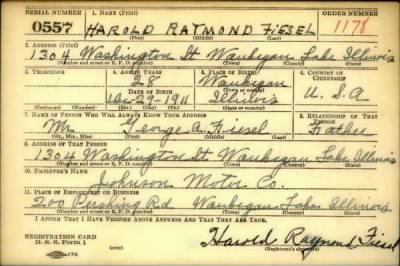 SERIAL NUMBER 1. NAME (Print) ORDER NUMBER
0557 HAROLD RAYMOND FIESEL 1178
(First) (Middle) (Last)
2. ADDRESS (Print)
1304 Washington St Waukegan Lake Illinois
(Number and street or R. F. D. number) (Town) (County) (State)
3. TELEPHONE 4. AGE IN YEARS 5. PLACE OF BIRTH 6. COUNTRY OF CITIZENSHIP
28 Waukegan
DATE OF BIRTH (Town or county)
10-29-1911 Illinois U.S.A
(Exchange) (Number) (Mo.) (Day) (Yr.) (State or country)
7. NAME OF PERSON WHO WILL ALWAYS KNOW YOUR ADDRESS 8. RELATIONSHIP OF THAT PERSON
Mr. George A. Fiesel Father
(Mr., Mrs., Miss) (First) (Middle) (Last)
9. ADDRESS OF THAT PERSON
1304 Washington St. Waukegan Lake Illinois
(Number and street or R. F. D. number) (Town) (County) (State)
10. EMPLOYER'S NAME
Johnson Motor Co.
11. PLACE OF EMPLOYMENT OR BUSINESS
200 Pershing Rd Waukegan Lake Illinois
(Number and street or R. F. D. number) (Town) (County) (State)
I AFFIRM THAT I HAVE VERIFIED ABOVE ANSWERS AND THAT THEY ARE TRUE.
REGISTRATION CARD
D. S. S. Form 1
Harold Raymond Fiesel
(Registrant's signature)